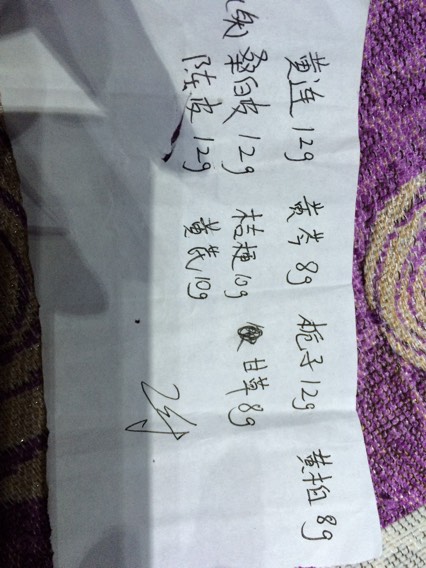 黄连 12g 黄芩 8g 栀子 12g 黄柏 8g
桑白皮 12g 桔梗 10g 甘草 8g
陈皮 12g 黄芪 10g